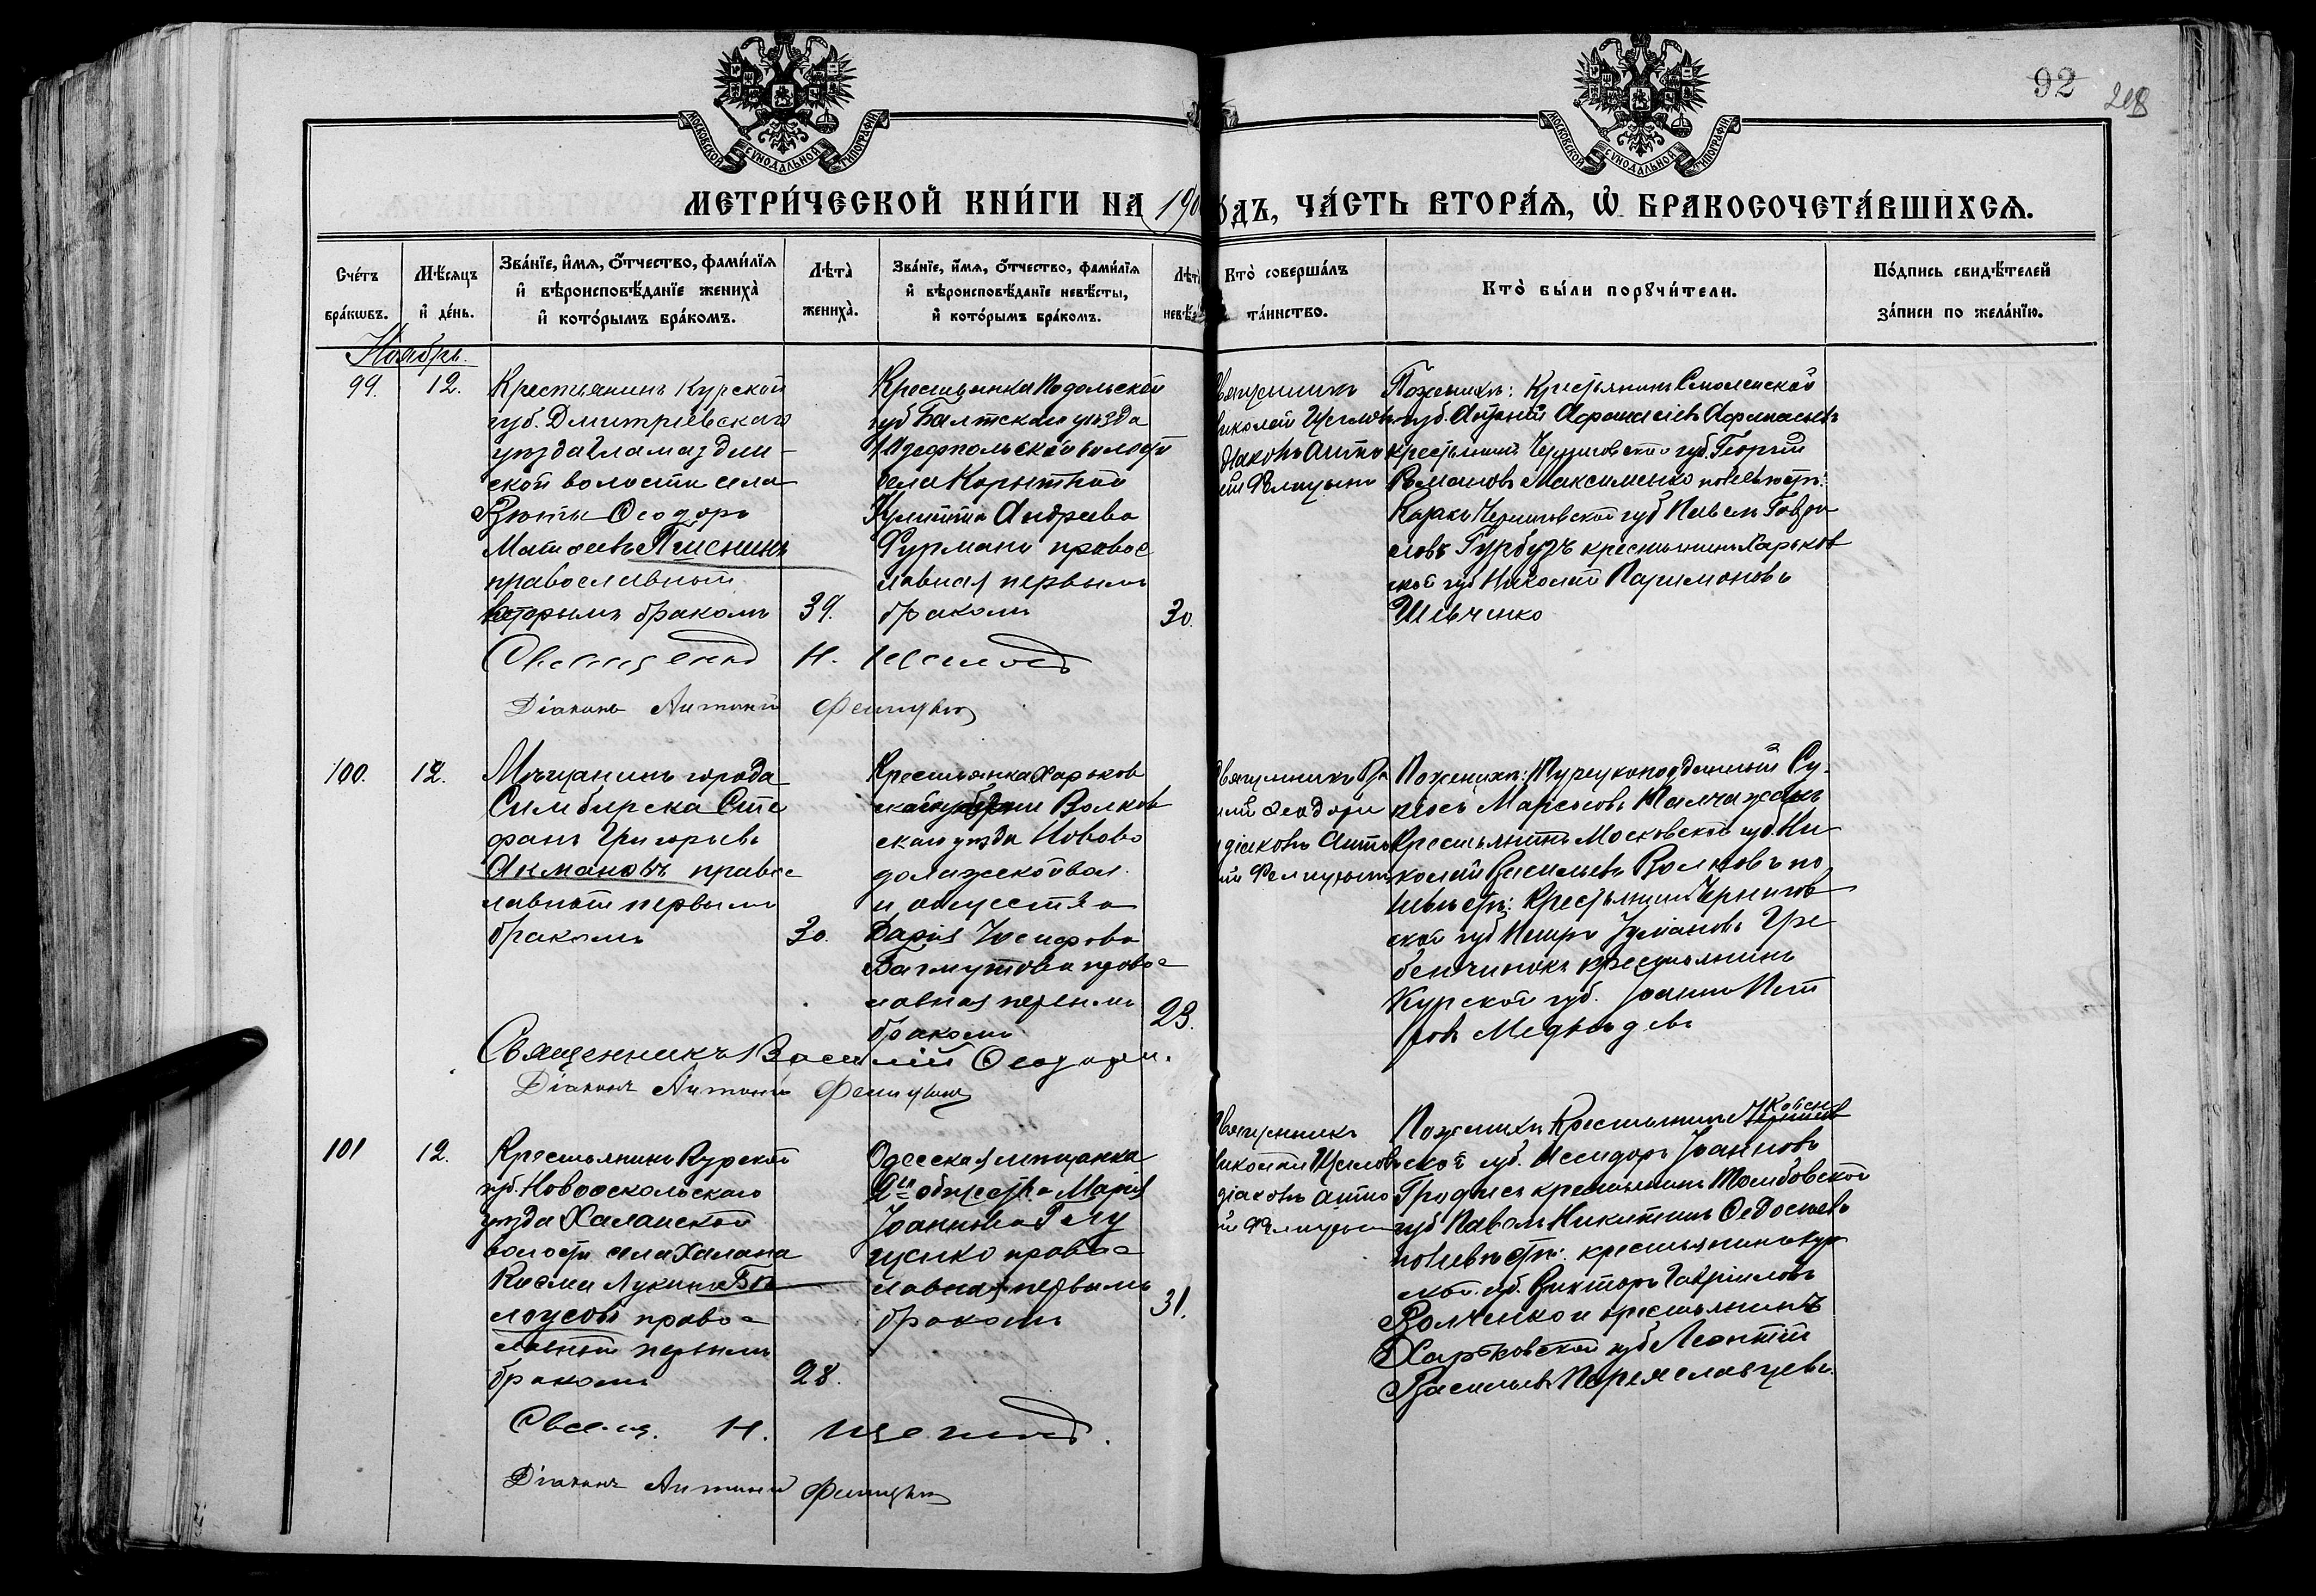 92
208
МОСКОВСКОЙ СѴНОДАЛЬНОЙ ТИПОГРАФІИ
МОСКОВСКОЙ СѴНОДАЛЬНОЙ ТИПОГРАФІИ
МЕТРИ́ЧЕСКОЙ КНИ́ГИ НА 190
ОДЪ, ЧА́СТЬ ВТОРА́Ѧ, Ѡ БРАКОСОЧЕТА́ВШИХСѦ.
Сче́тъ
бра́кѡвъ.
Мѣ́сяцъ
и҆ де́нь.
Зва́нїе, и҆́мѧ, о҆́тчество, фами́лїѧ
и҆ вѣроисповѣ́данїе жениха̀
и҆ кото́рымъ бра́комъ.
Лѣта̀
жениха̀.
Зва́нїе, и҆́мѧ, о҆́тчество, фами́лїѧ
и҆ вѣроисповѣ́данїе невѣ́сты,
и҆ кото́рымъ бра́комъ.
Лѣта̀
невѣ
Кто̀ соверша́лъ
та́инство.
Кто̀ бы́ли порꙋчи́тели.
По́дпись свидѣ́телей
за́писи по жела́нїю.
Ноябрь.
99.
12.
Крестьянинъ Курской
губ. Дмитріевскаго
уѣзда
ской волости села
Ѳеодоръ
Матѳеевъ Пшенинъ
православный
вторымъ бракомъ
39.
Крестьянка Подольской
губ Балтскаго уѣзда
волости
села Корытной
Андреева
Фурманъ правос
лавная первымъ
бракомъ
30.
вященникъ
иколай Щегловъ
діаконъ Анто
ній
По женихѣ: Крестьянинъ Смоленской
губ. Афанасіевъ Афанасьевъ
крестьянинъ Черниговской губ. Георгій
Романовъ Максименко по невѣстѣ:
Козакъ Черниговской губ Павелъ Гаврі
ловъ Гурбузъ крестьянинъ Харьков
ской губ Николай Паримоновъ
Шевченко
Священникъ Н. Щегловъ
Діаконъ Антоній
100.
12.
Мѣщанинъ города
Симбирска Сте
фанъ Григорьевъ
Акмановъ правос
лавный первымъ
бракомъ
30.
Крестьянка Харьков
ской губерніи Волков
скаго уѣзда Новово
долажской вол.
и общества
Дарія Іосифова
Багмутова правос
лавная первымъ
бракомъ
23.
вященникъ Ва
илій Ѳеодори
діаконъ Анто
ній
По женихѣ: Турецкоподданный
Марковъ
Крестьянинъ Московской губ. Ни
колай Васильевъ Волковъ по
невѣстѣ: Крестьянинъ Чернигов
ской губ Петръ Гре
бенчиковъ крестьянинъ
Курской губ. Іоаннъ Пет
ровъ Медвѣдевъ
Священникъ Василій Ѳеодори.
Діаконъ Антоній
101
12.
Крестьянинъ Курской
губ. Новооскольскаго
уѣзда Халанской
волости села Халана
Косма Лукинъ Бѣ
лоусовъ правос
лавный первымъ
бракомъ
28.
Одесская мѣщанка
2го общества Марія
Іоаннова Галу
щенко правос
лавная первымъ
бракомъ
31.
вященникъ
иколай Щегловъ
діаконъ Анто
ній
По женихѣ Крестьянинъ
ской губ. Исидоръ Іоанновъ
крестьянинъ Тамбовской
губ Павелъ Никитинъ Ѳедосѣевъ
по невѣстѣ: крестьянинъ Кур
ской губ. Викторъ Гавріиловъ
Волченко и крестьянинъ
Харьковской губ Леонтій
Васильевъ Переяславцевъ.
Свящ. Н. Щегловъ.
Діаконъ Антоній